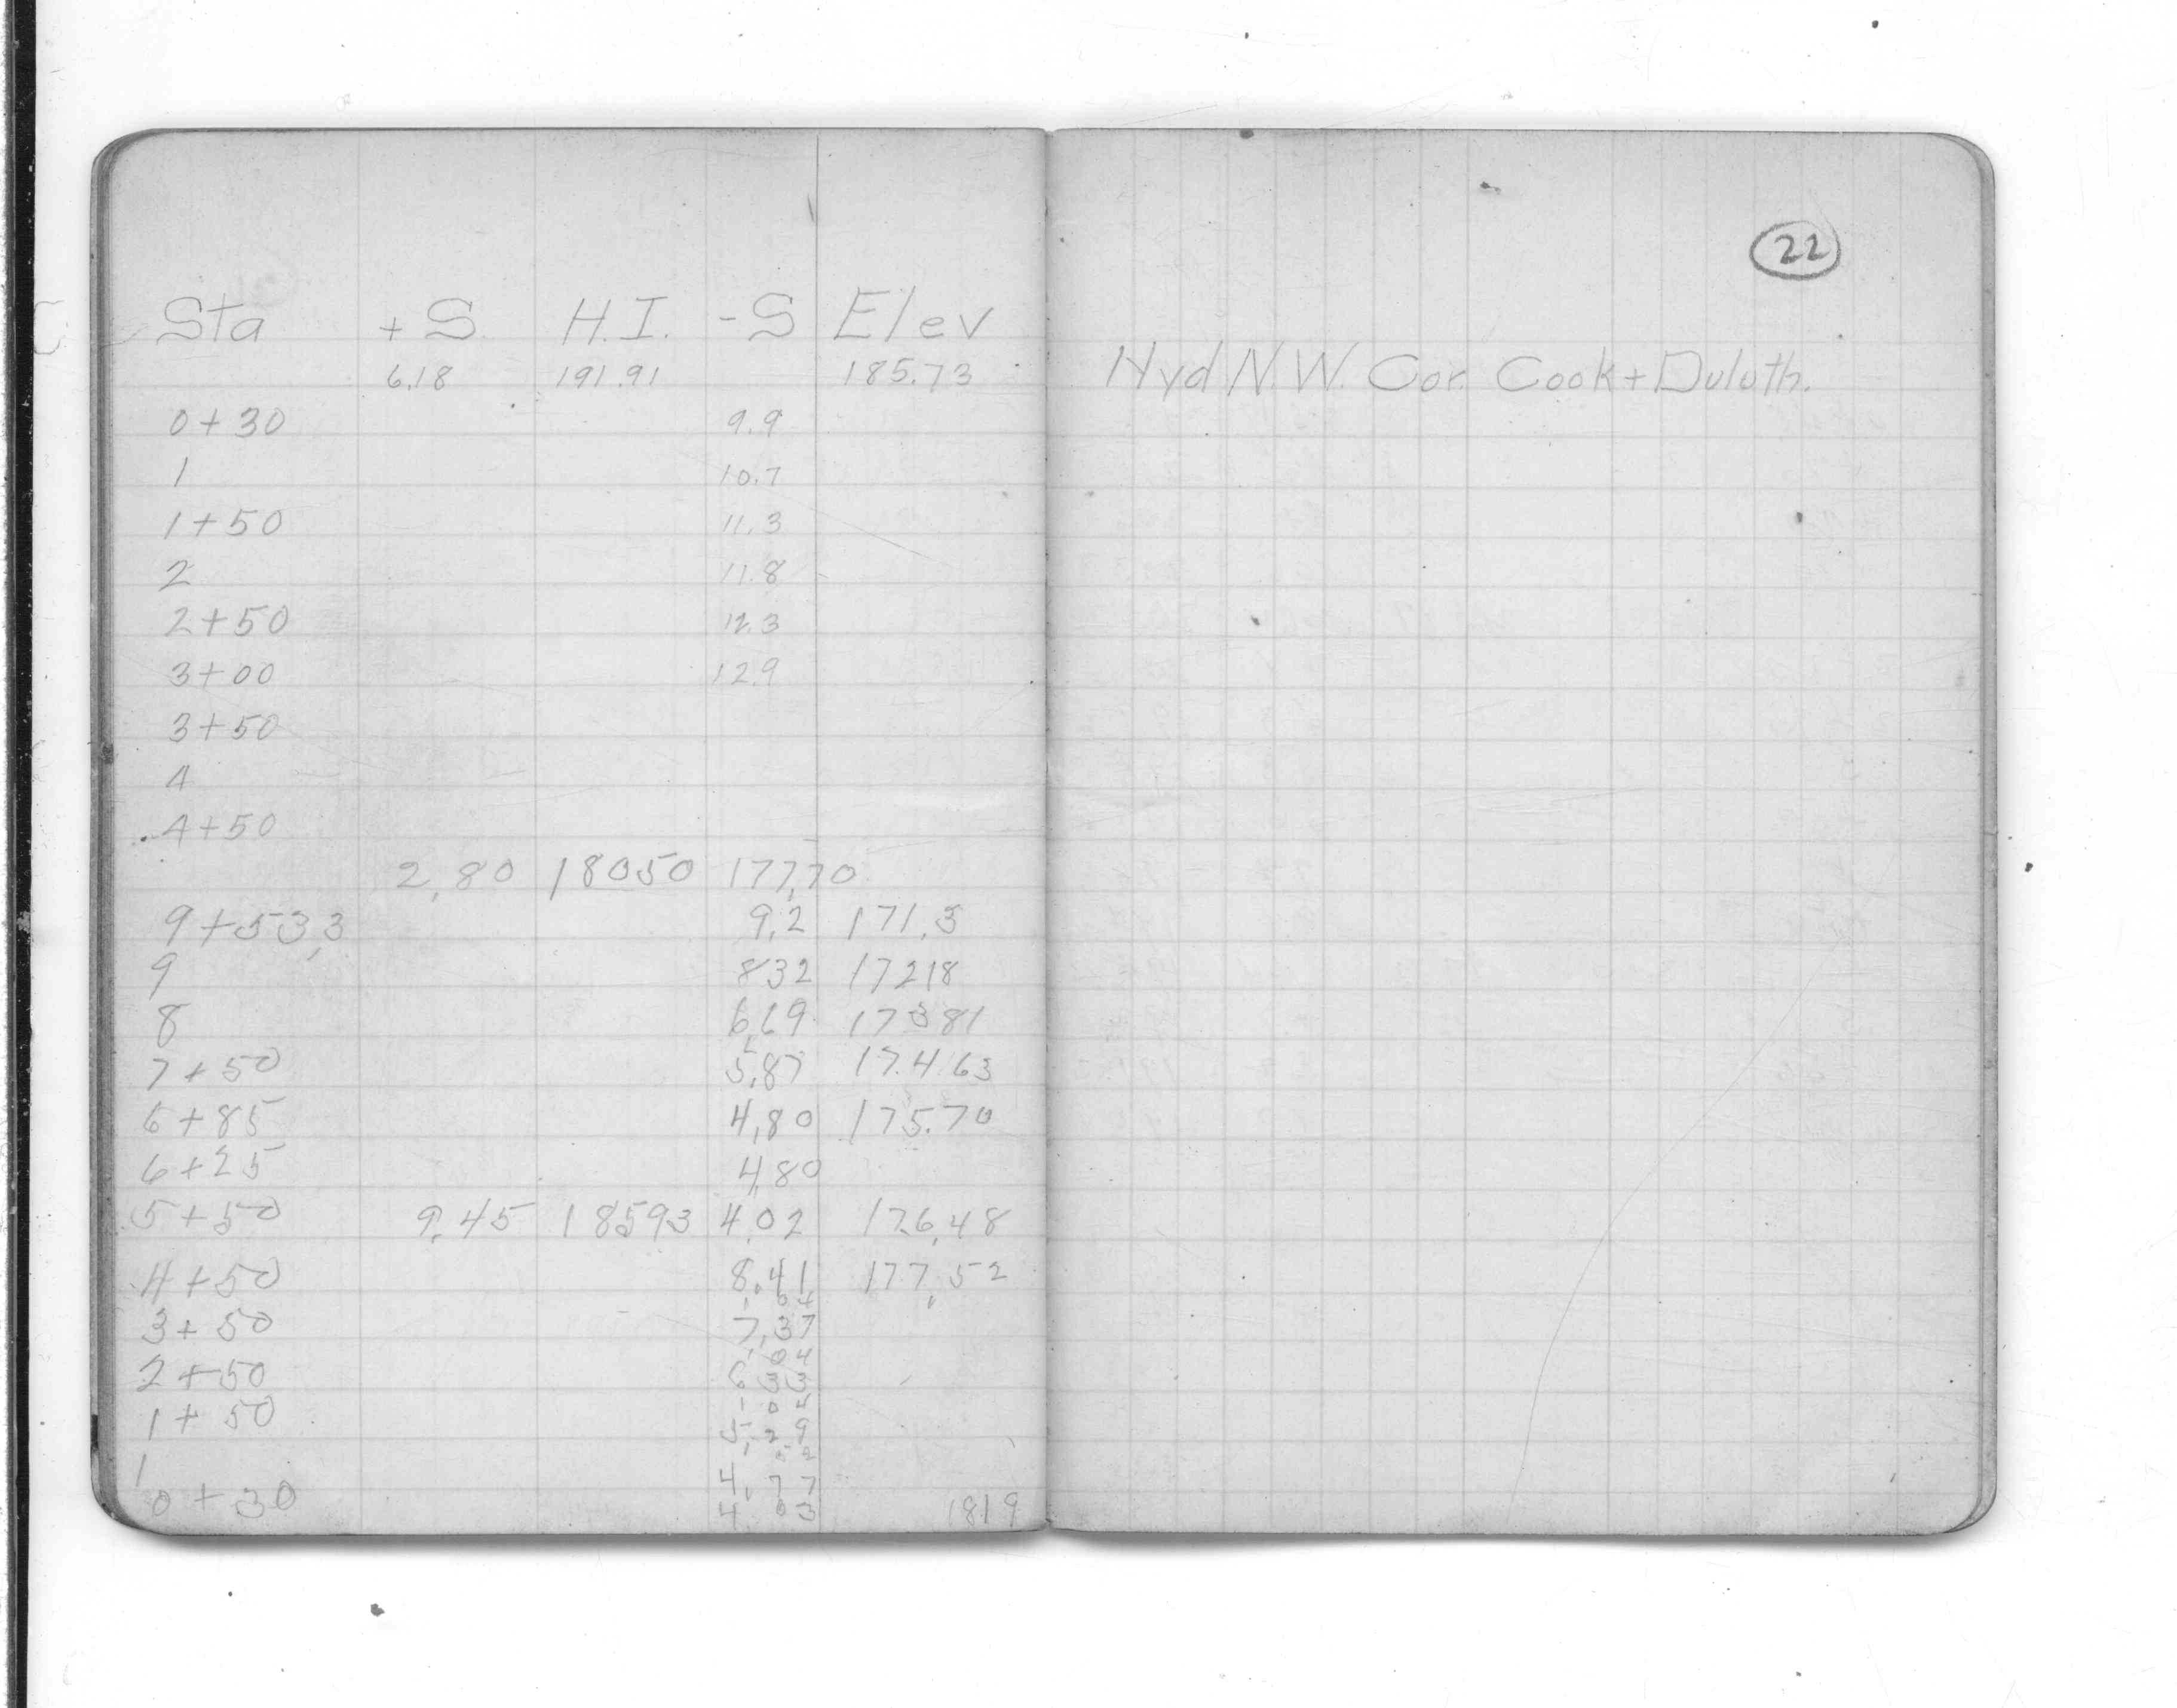 Sta +S H.I. -S Elev
6.18 191.91 185.73
0+30 9.9
1 10.7
1+50 11.3
2 11.8
2+50 12.3
3+00 12.9
3+50
4
4+50
2,80 18050 177,70
9+53,3 9,2 171,3
9 832 17218
8 6,69 17381
7+50 5,87 174.63
6+85 4,80 175.70
6+25 4,80
5+50 9,45 18593 4,02 176,48
4+50 8,41 177,52
1 04
3+50 7,37
1 04
2+50 6,33
1 04
1+50 5,29
1 4,77
0+30 4,03 1819
22
Hyd N.W. Cor. Cook + Duluth.